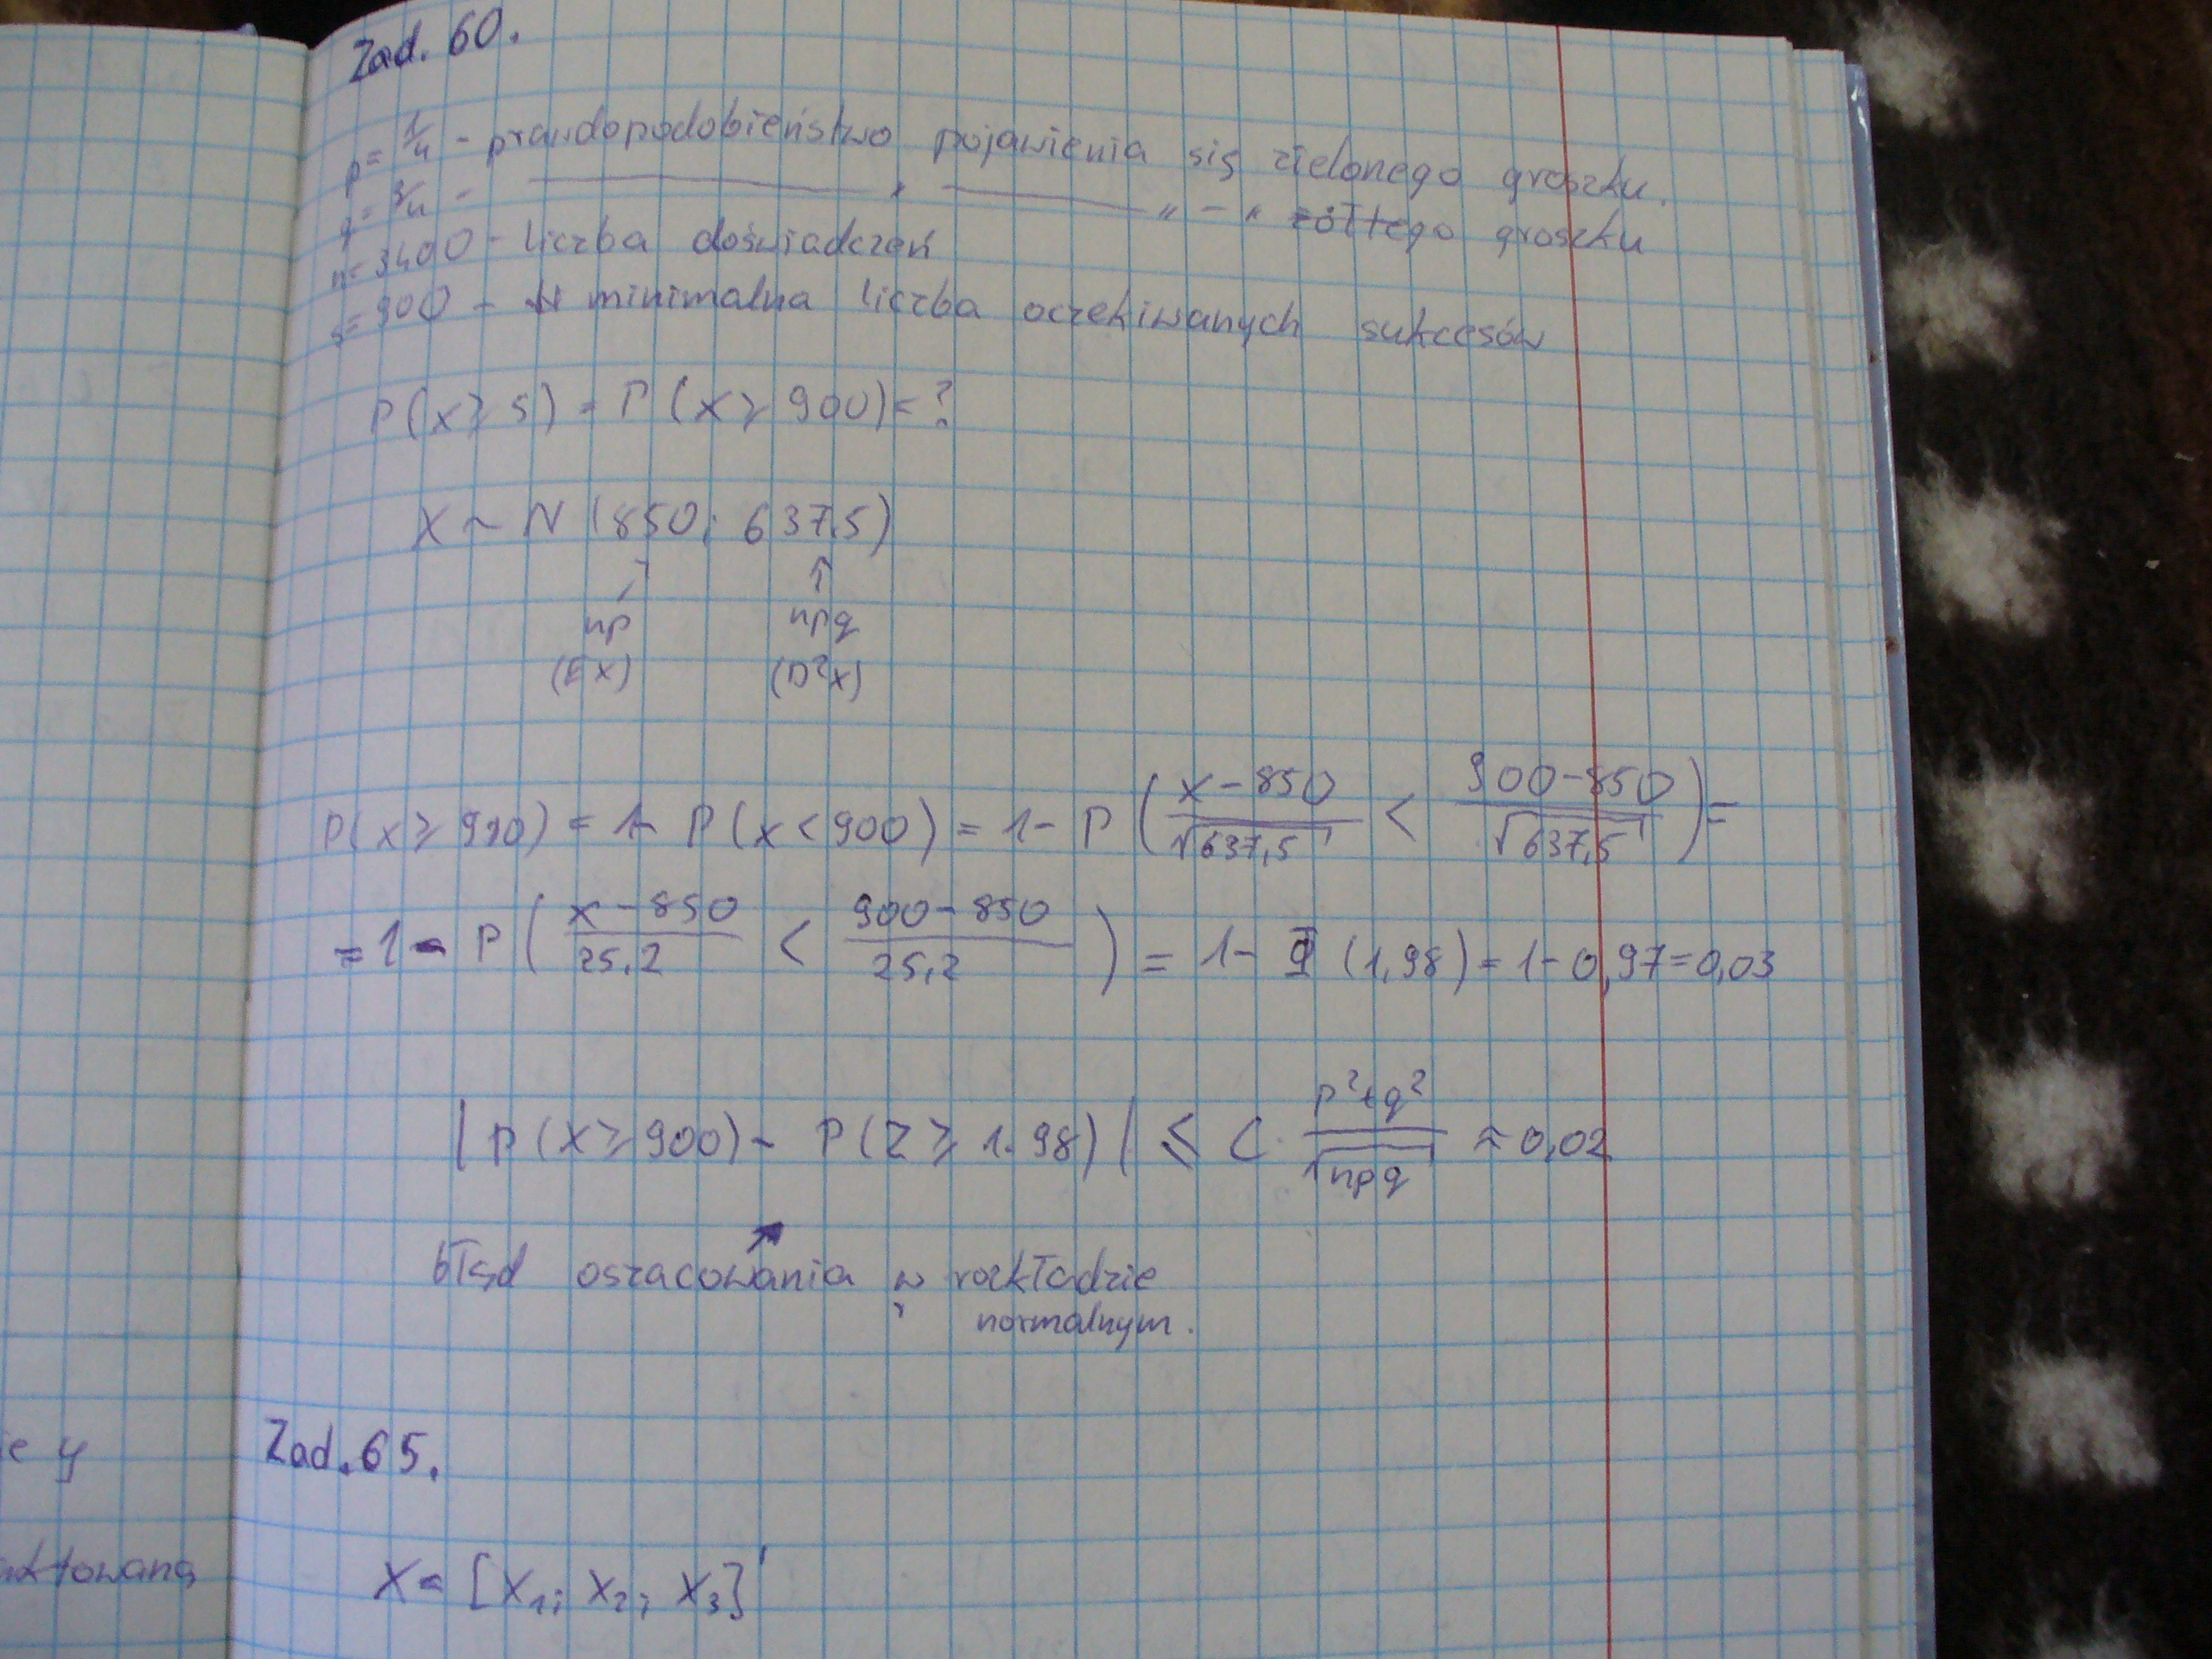 Zad. 60.
p = 1/4 - prawdopodobieństwo pojawienia się zielonego groszku.
q = 3/4 - ———— " ———— " - " żółtego groszku
n = 3400 - liczba doświadczeń
s = 900 - minimalna liczba oczekiwanych sukcesów
P(X ≥ s) = P(X ≥ 900) = ?
X ~ N (850; 637,5)
np npq
(EX) (D²X)
P(X ≥ 900) = 1 - P(X < 900) = 1 - P( (X - 850)/√637,5 < (900 - 850)/√637,5 ) =
= 1 - P( (X - 850)/25,2 < (900 - 850)/25,2 ) = 1 - Φ (1,98) = 1 - 0,97 = 0,03
|P(X ≥ 900) - P(Z ≥ 1.98)| ≤ C · (p² + q²)/√npq ≈ 0,02
błąd oszacowania w rozkładzie
normalnym.
ie y
Zad. 65.
X = [X₁; X₂; X₃]'